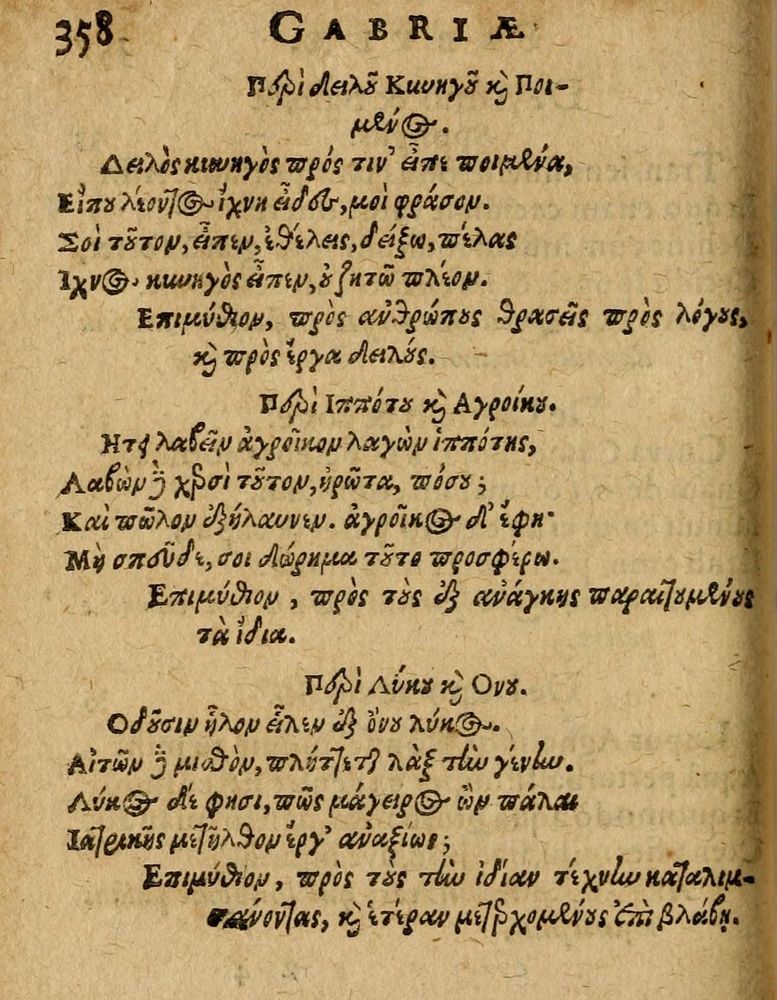 358 GABRIÆ
Περὶ δειλοῦ Κυνηγοῦ καὶ Ποι-
μένος.
Δειλὸς κυνηγὸς πρός τιν' εἶπε ποιμένα,
Εἴπου λέοντος ἴχνη εἶδες, μοὶ φράσον.
Σοὶ τοῦτον, εἶπεν, ἐθέλεις, δείξω, πέλας
Ιχνος κυνηγὸς εἶπεν, οὐ ζητῶ πλέον.
Επιμύθιον, πρὸς ἀνθρώπους θρασεῖς πρὸς λόγους,
καὶ πρὸς ἔργα δειλούς.
Περὶ Ιππότου καὶ Αγροίκου.
Ητει λαβεῖν ἀγροῖκον λαγὼν ἱππότης,
Λαβὼν δὲ χερσὶ τοῦτον, ἠρώτα, πόσου;
Καὶ πῶλον ἐξήλαυνεν. ἀγροῖκος δ' ἔφη·
Μὴ σπεῦδε, σοι δώρημα τοῦτο προσφέρω.
Επιμύθιον, πρὸς τοὺς ἐξ ἀνάγκης παραιτουμένους
τὰ ἴδια.
Περὶ Λύκου καὶ Ονου.
Οδοῦσιν ἧλον εἷλεν ἐξ ὄνου λύκος.
Αἰτῶν δὲ μισθὸν, πλήττεται λὰξ τὴν γένυν.
Λύκος δέ φησι, πῶς μάγειρος ὢν πάλαι
Ιατρικῆς μετῆλθον ἔργ' ἀναξίως;
Επιμύθιον, πρὸς τοὺς τὴν ἰδίαν τέχνην καταλιμ-
πάνοντας, καὶ ἑτέραν μετερχομένους ἐπὶ βλάβῃ.